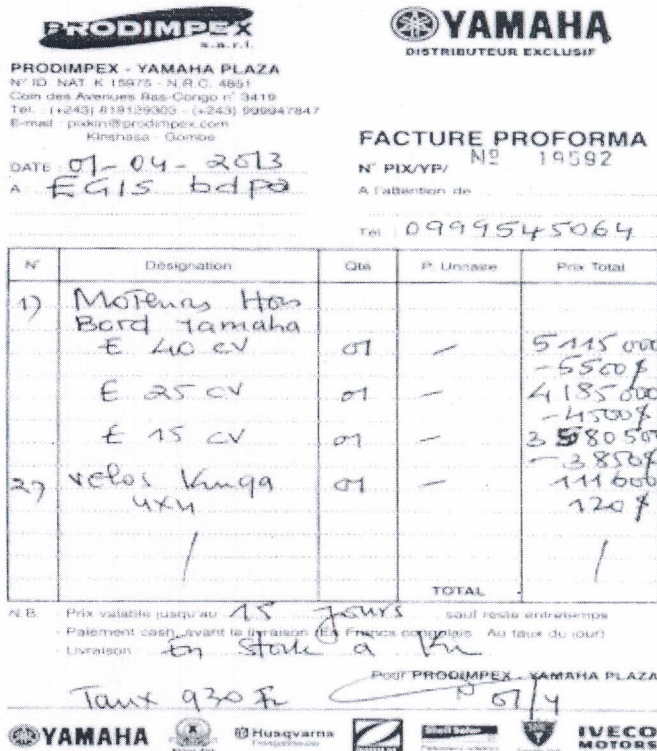 PRODIMPEX
s.a.r.l.
YAMAHA
DISTRIBUTEUR EXCLUSIF
PRODIMPEX - YAMAHA PLAZA
N° ID. NAT. K 15975 - N.R.C. 4851
Coin des Avenues Bas-Congo n° 3419
Tél. : (+243) 818129303 - (+243) 999947847
E-mail : pixkin@prodimpex.com
Kinshasa - Gombe
FACTURE PROFORMA
N° PIX/YP/ Nº 19592
DATE : 01-04-2013
A : EGIS bdpa
A l'attention de
Tél. : 0999545064
N° Désignation Qté P. Unitaire Prix Total
1) Moteurs Hors
Bord Yamaha
E 40 CV 01 - 5 115 000
- 5500 $
E 25 CV 01 - 4.185 000
- 4500 $
E 15 CV 01 - 3 580 500
- 3850 $
2) Velos Kinga 01 - 111 600
4x4 120 $
TOTAL
N.B. : - Prix valable jusqu'au 15 jours sauf reste entretemps
- Paiement cash, avant la livraison (En Francs congolais. Au taux du jour)
- Livraison En Stock à Kin
Pour PRODIMPEX - YAMAHA PLAZA
Taux 930 Fc
YAMAHA
Husqvarna
Shell
IVECO
MOTORS